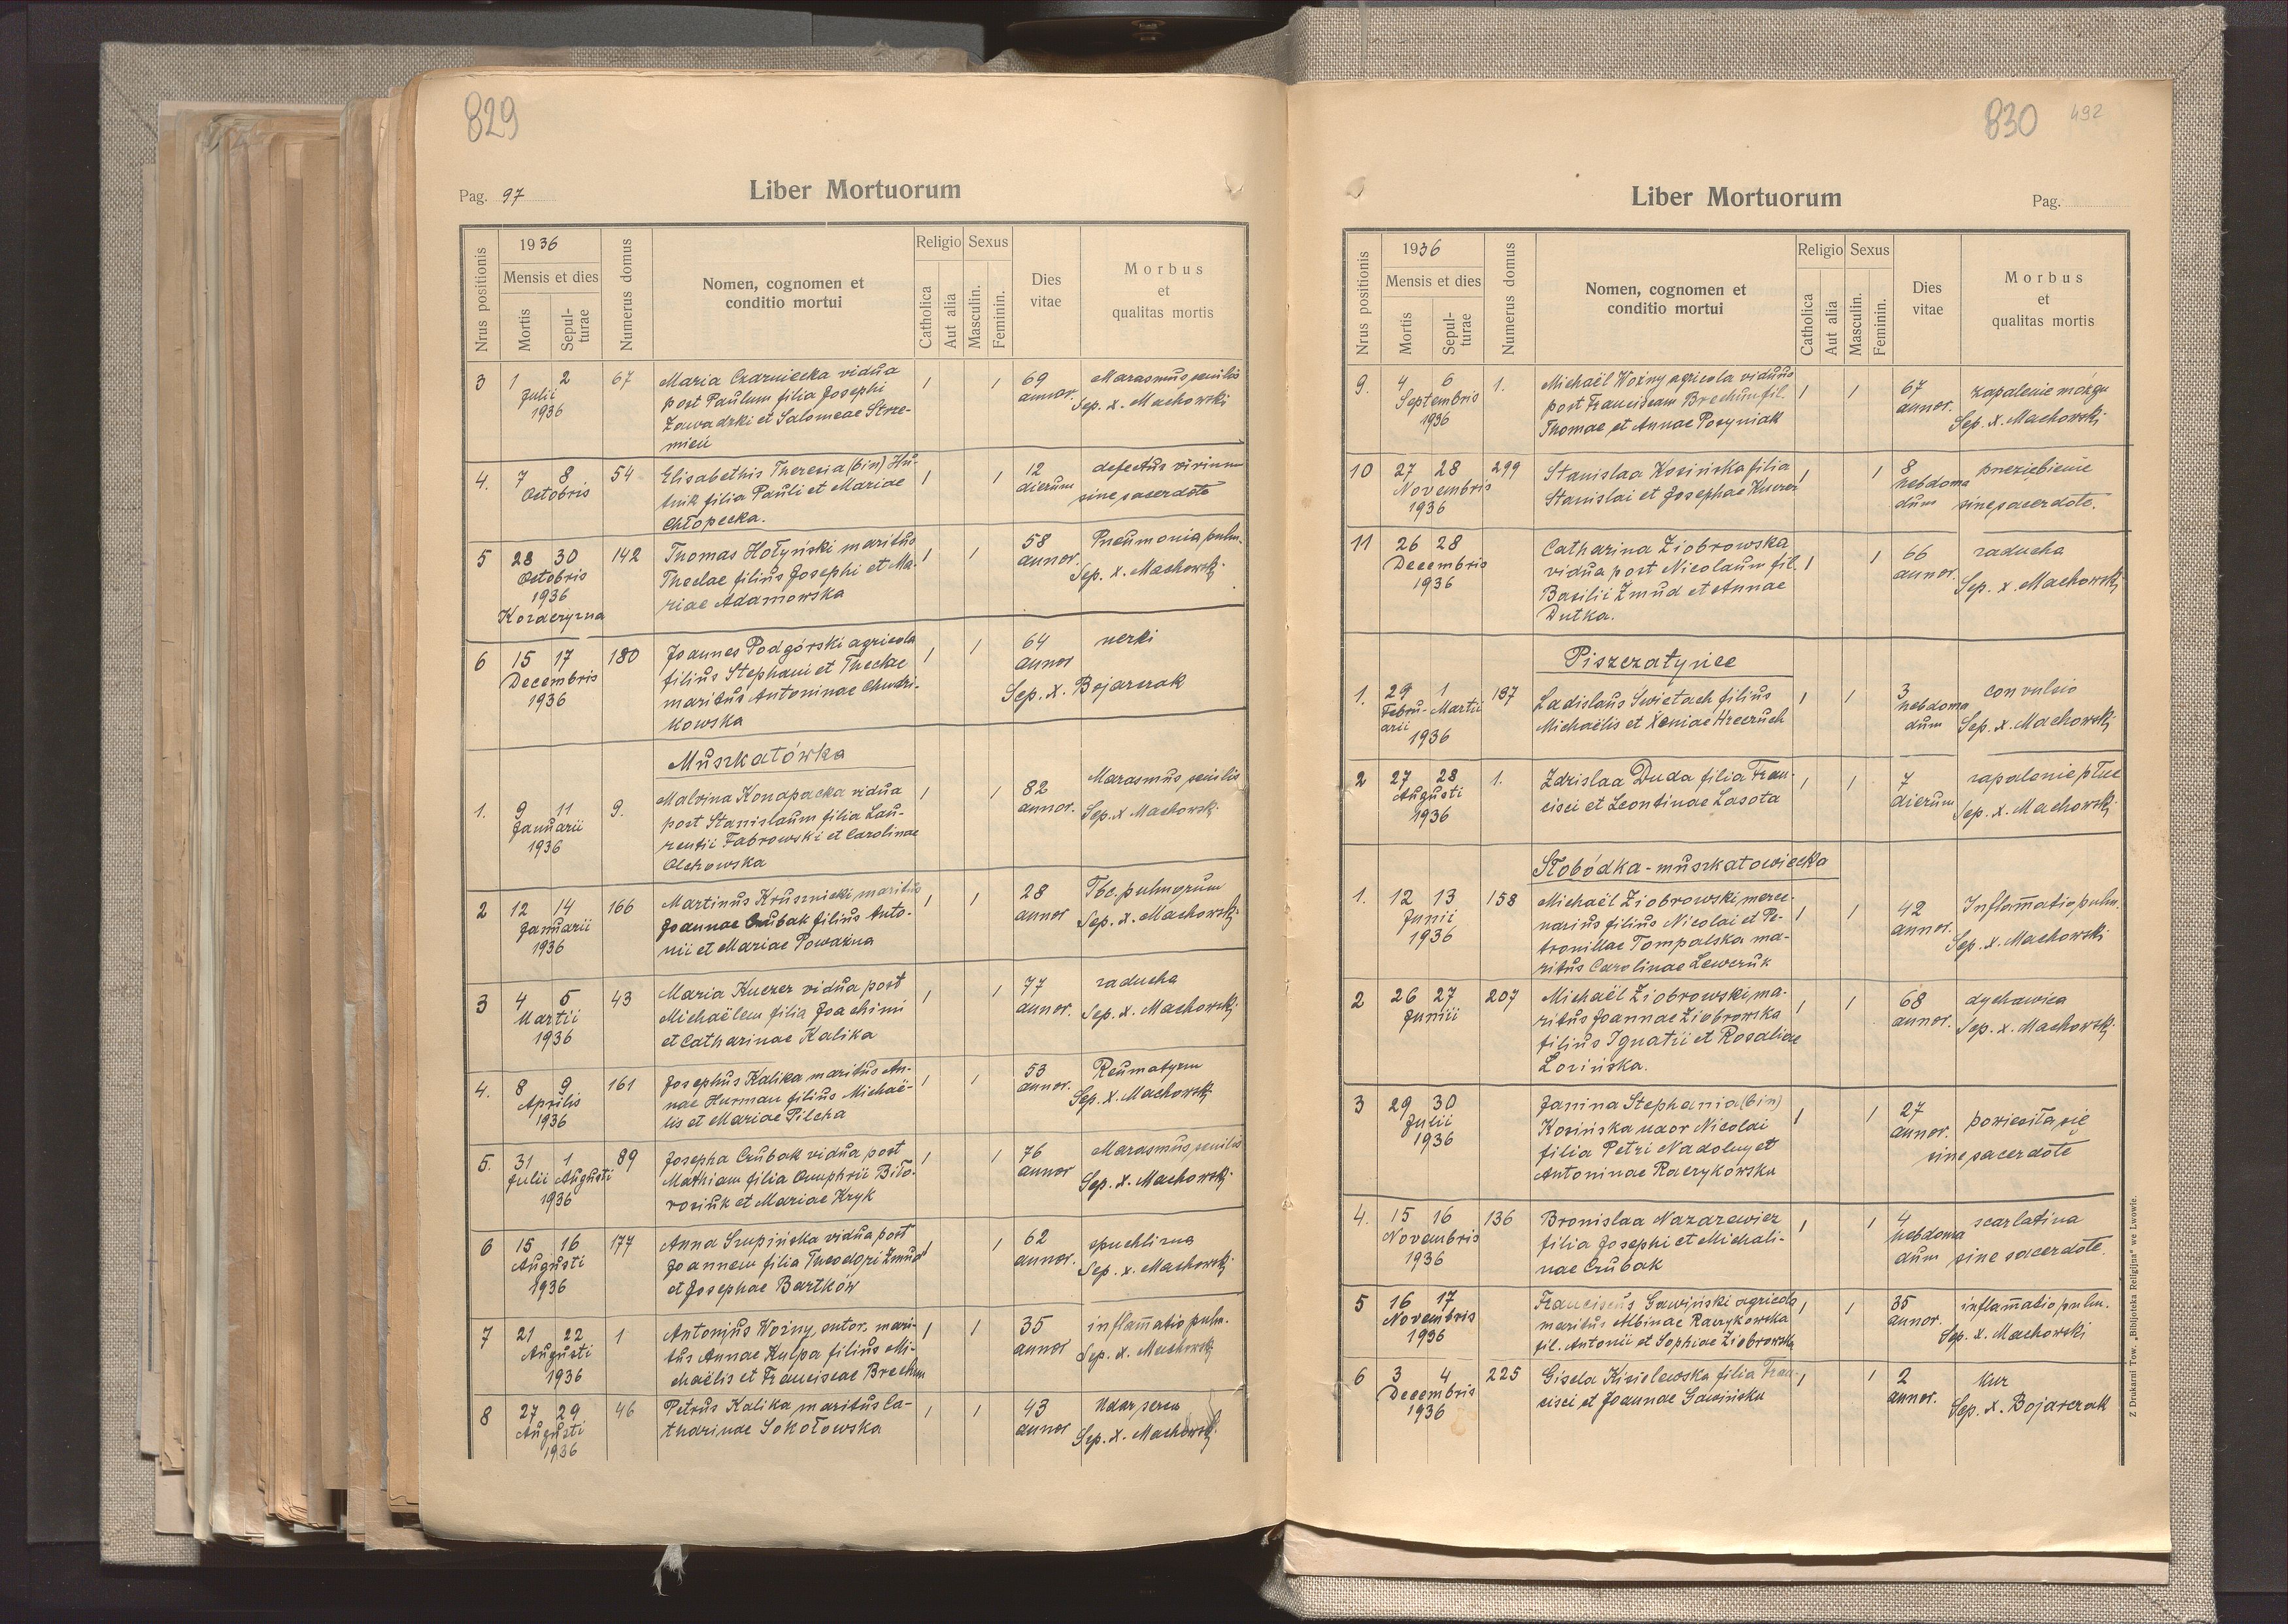 829
Pag. 97
Liber Mortuorum
Nrus positionis
1936
Mensis et dies
Mortis
Sepul-
turae
Numerus domus
Nomen, cognomen et
conditio mortui
Religio
Catholica
Aut alia
Sexus
Masculin.
Feminin.
Dies
vitae
Morbus
et
qualitas mortis
3 1 2 67 Maria Czarniecka vidua 1 1 69 Marasmus senilis
Julii post Paulum filia Josephi annor. Sep. X. Machowski
1936 Zawadzki et Salomeae Strze-
mień
4. 7 8 54 Elisabethis Theresia (bin) Hu- 1 1 12 defectus virium
Octobris tnik filia Pauli et Mariae dierum sine sacerdote
Chłopecka.
5 28 30 142 Thomas Hołyński maritus 1 1 58 Pneumonia pulm.
Octobris Theclae filius Josephi et Ma- annor. Sep. X. Machowski
1936 riae Adamowska
Korderyzna
6 15 17 180 Joannes Podgórski agricola 1 1 64 nerki
Decembris filius Stephani et Theclae annor
1936 maritus Antoninae Sep. X. Bojarczak
kowska
Muszkatówka
1. 9 11 9. Malvina Konopacka vidua 1 1 82 Marasmus senilis
Januarii post Stanislaum filia Lau- annor. Sep. X Machowski
1936 rentii Fabrowski et Carolinae
Olchowska
2 12 14 166 Martinus Krusznicki maritus 1 1 28 Tbc. pulmorum
Januarii Joannae Czubak filius Anto- annor Sep. X. Machowski
1936 nii et Mariae Poważna
3 4 5 43 Maria Kuczer vidua post 1 1 77 raducha
Martii Michaëlem filia Joachimi annor. Sep. X. Machowski
1936 et Catharinae Kalika
4. 8 9 161 Josephus Kalika maritus An- 1 1 53 Reumatyzm
Aprilis nae Hurman filius Michaë- annor. Sep. X. Machowski
1936 lis et Mariae Pilcha
5. 31 1 89 Josepha Czubak vidua post 1 1 76 Marasmus senilis
Julii Augusti Mathiam filia Onuphrii Biło- annor Sep. X. Machowski
1936 rosiuk et Mariae Kryk
6 15 16 177 Anna Szupińska vidua post 1 1 62 spuchlizna
Augusti Joannem filia Theodori Żmud annor. Sep. X. Machowski
1936 et Josephae Bartków
7 21 22 1 Antonius Woźny sutor, mari- 1 1 35 inflam̄atio pulm.
Augusti tus Annae Kulpa filius Mi- annor Sep. X. Machowski
1936 chaëlis et Franciscae Brechun
8 27 29 46 Petrus Kalika maritus Ca- 1 1 43 Udar serca
Augusti tharinae Sokołowska annor Sep. X. Machowski
1936
830 492
Liber Mortuorum
Pag.
Nrus positionis
1936
Mensis et dies
Mortis
Sepul-
turae
Numerus domus
Nomen, cognomen et
conditio mortui
Religio
Catholica
Aut alia
Sexus
Masculin.
Feminin.
Dies
vitae
Morbus
et
qualitas mortis
9. 4 6 1. Michaël Woźny agricola viduus 1 1 67 zapalenie mózgu
Septembris post Franciscam Brechun fil. annor. Sep. X. Machowski
1936 Thomae et Annae Posyniak
10 27 28 299 Stanislaa Kosińska filia 1 1 8 przeziębienie
Novembris Stanislai et Josephae Kuczer hebdoma
1936 dum sine sacerdote.
11 26 28 Catharina Ziobrowska 1 1 66 raducha
Decembris vidua post Nicolaum fil. annor. Sep. X. Machowski
1936 Basilii Żmud et Annae
Dutka.
Piszczatyńce
1. 29 1 187 Ladislaus Świetach filius 1 1 3 convulsio
Febru- Martii Michaëlis et Xeniae Hreczuch hebdoma
arii dum Sep. X. Machowski
1936
2 27 28 1. Zdzislaa Duda filia Fran- 1 1 7 zapalenie płuc
Augusti cisci et Leontinae Lasota dierum Sep. X. Machowski
1936
Słobódka-muszkatowiecka
1. 12 13 158 Michaël Ziobrowski merce- 1 1 42 Inflam̄atio pulm.
Junii narius filius Nicolai et Pe- annor. Sep. X. Machowski
1936 tronillae Tompalska ma-
ritus Carolinae Lewczuk
2 26 27 207 Michaël Ziobrowski ma- 1 1 68 dychawica
Junii ritus Joannae Ziobrowska annor. Sep. X. Machowski
filius Ignatii et Rosaliae
Lozińska.
3 29 30 Janina Stephania (bin) 1 1 27 powiesiła się
Julii Kosińska uxor Nicolai annor.
1936 filia Petri Nadolny et sine sacerdote
Antoninae Raczykówska
4. 15 16 136 Bronislaa Nazarewicz 1 1 4 scarlatina
Novembris filia Josephi et Michali- hebdoma
1936 nae Czubak dum sine sacerdote.
5 16 17 Franciscus Gawiński agricola 1 1 35 inflam̄atio pulm.
Novembris maritus Albinae Raczykowska annor. Sep. X. Machowski
1936 fil. Antonii et Sophiae Ziobrowska
6 3 4 225 Gisela Kisielewska filia Fran- 1 1 2 kur
Decembris cisci et Joannae Gawińska annor. Sep. X. Bojarczak
1936
Z Drukarni Tow. „Bibljoteka Religijna" we Lwowie.